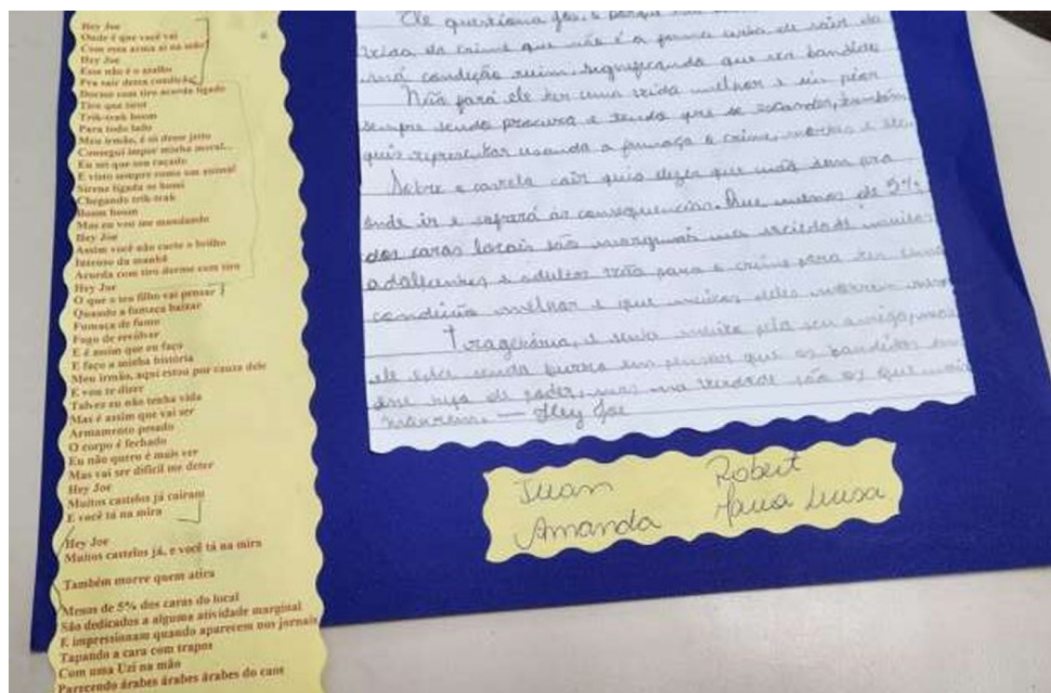 Hey Joe
Onde é que você vai
Com essa arma aí na mão
Hey Joe
Esse não é o atalho
Pra sair dessa condição
Dorme com tiro acorda ligado
Tiro que tiro
Trik-trak boom
Para todo lado
Meu irmão, é só desse jeito
Consegui impor minha moral...
Eu sei que sou caçado
E visto sempre como um animal
Sirene ligada os homi
Chegando trik-trak
Boom boom
Mas eu vou me mandando
Hey Joe
Assim você não curte o brilho
Intenso da manhã
Acorda com tiro dorme com tiro
Hey Joe
O que o teu filho vai pensar
Quando a fumaça baixar
Fumaça de fumo
Fogo de revólver
E é assim que eu faço
E faço a minha história
Meu irmão, aqui estou por causa dele
E vou te dizer
Talvez eu não tenha vida
Mas é assim que vai ser
Armamento pesado
O corpo é fechado
Eu não quero é mais ver
Mas vai ser difícil me deter
Hey Joe
Muitos castelos já caíram
E você tá na mira
Hey Joe
Muitos castelos já, e você tá na mira
Também morre quem atira
Menos de 5% dos caras do local
São dedicados a alguma atividade marginal
E impressionam quando aparecem nos jornais
Tapando a cara com trapos
Com uma Uzi na mão
Parecendo árabes árabes árabes do caos
Ele questiona porque
vida do crime que não é a forma certa de sair da
má condição ruim, significando que ser bandido
Não pará ele ter uma vida melhor e sim pior
sempre sendo procura e tendo que se esconder, também
quis representar usando a fumaça o crime, mortes e etc.
Sobre o castelo cair quis dizer que não tem pra
onde ir e sofrerá as consequencias. Que menos de 5%
dos caras locais são marginais na sociedade muitos
adolecentes e adultos vão para o crime para ter uma
condição melhor e que muitos deles morrem
ele está sendo burro em pensar que os bandidos
de poder, mas na verdade são os que mais
morrem. — Hey Joe
Juan Robert
Amanda Maria Luisa